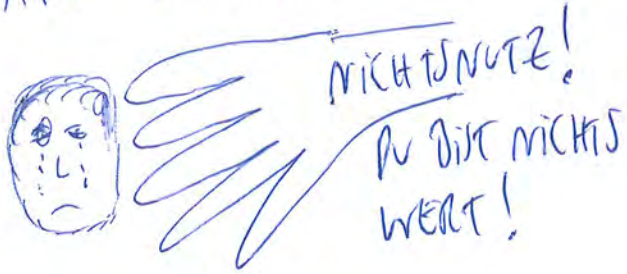 NICHTSNUTZ!
DU BIST NICHTS
WERT!